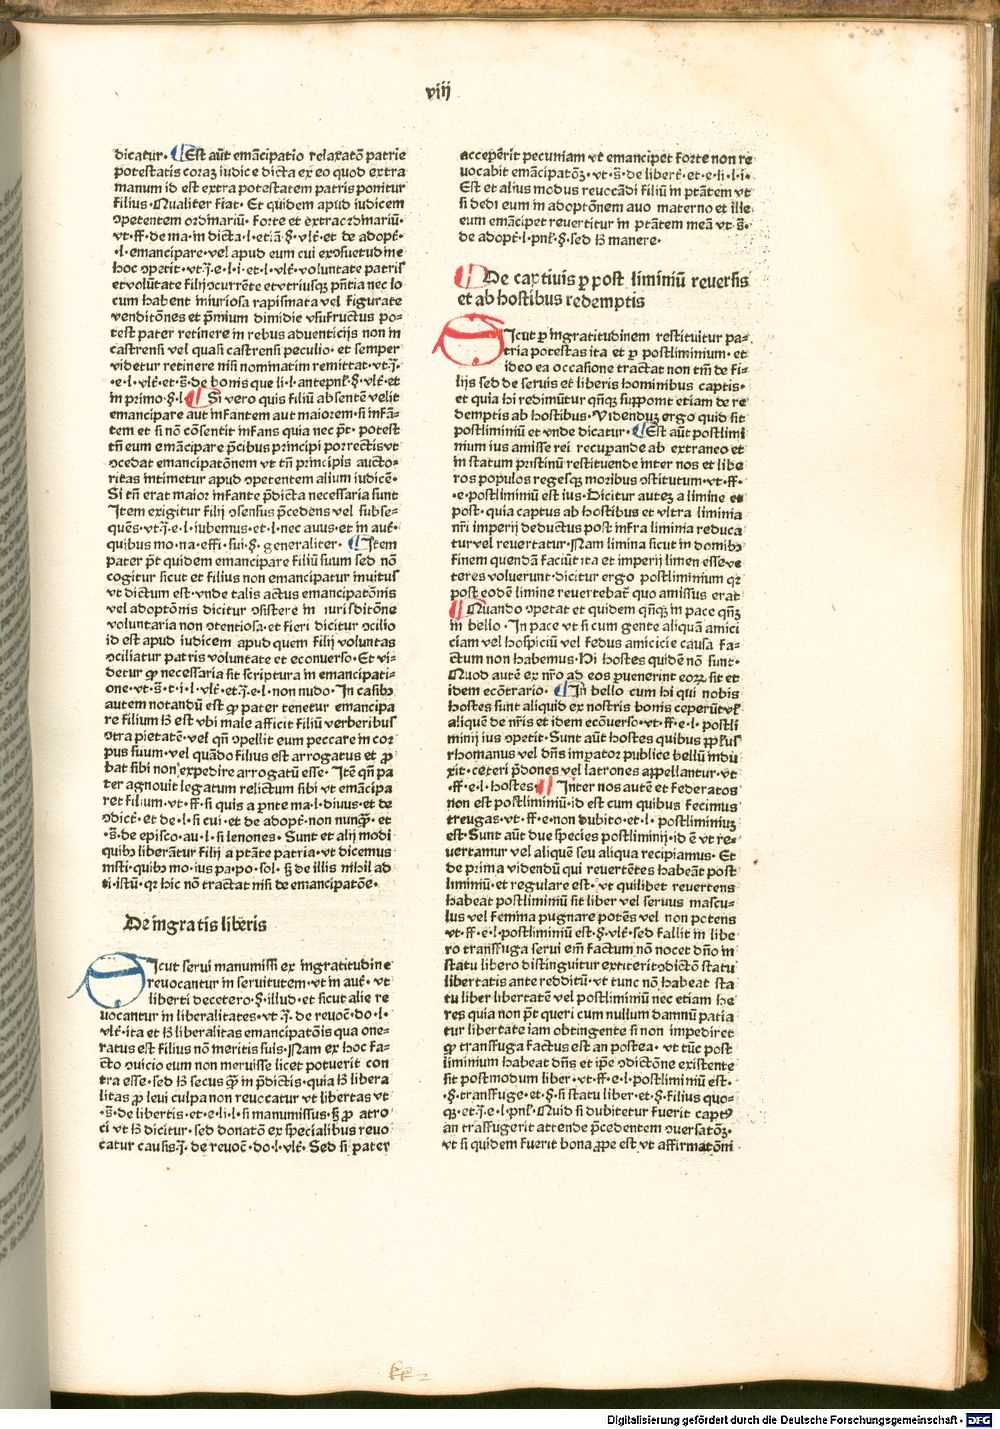 viij
dicatur· Est aūt emācipatio relaxatō patrie
potestatis coraʒ iudice dicta ex eo quod extra
manum id est extra potestatem patris ponitur
filius· Qualiter fiat· Et quidem apud iudicem
ꝯpetentem ordinariū· forte et extraordinariū·
vt·ff·de ma·in dicta·l·etiā·§·vlt̄·et de adopt̄·
·l·emancipare·vel apud eum cui exꝯsuetudine
hoc ꝯpetit·vt·j·e·l·i·et·l·vlt̄·voluntate patris
et volūtate filij ꝯcurrēte et vtriusqꝫ p̄ntia nec lo
cum habent iniuriosa rapismata vel figurate
venditōnes et p̄mium dimidie vsufructus po⸗
test pater retinere in rebus aduenticijs non in
castrensi vel quasi castrensi peculio· et semper
videtur retinere nisi nominatim remittat·vt·j·
·e·l·vlt̄·et·s̄·de bonis que li·l·antepnl̄·§·vlt̄·et
in primo·§·l· Si vero quis filiū absentē velit
emancipare aut infantem aut maiorem·si infā⸗
tem et si nō cōsentit infans quia nec p̄t· potest
tn̄ eum emācipare p̄cibus principi porrectis vt
ꝓcedat emancipatōnem vt tn̄ principis aucto⸗
ritas intimetur apud ꝯpetentem alium iudicē·
Si tn̄ erat maior infante p̄dicta necessaria sunt
Item exigitur filij ꝯsensus p̄cedens vel subse⸗
quēs·vt·j·e·l·iubemus·et·l·nec auus·et in aut̄·
quibus mo·na·effi·sui·§·generaliter· Item
pater p̄t quidem emancipare filiū suum sed nō
cogitur sicut et filius non emancipatur inuitus
vt dictum est·vnde talis actus emancipatōnis
vel adoptōnis dicitur ꝯsistere in iurisditōne
voluntaria non ꝯtentiosa·et fieri dicitur ꝯcilio
id est apud iudicem apud quem filij voluntas
ꝯciliatur patris voluntate et econuerso·Et vi⸗
detur ꝙ necessaria sit scriptura in emancipati⸗
one·vt·s̄·t·i·l·vlt̄·et·j·e·l·non nudo·In casibꝫ
autem notandū est ꝙ pater tenetur emancipa
re filium hꝫ est vbi male afficit filiū verberibus
ꝯtra pietatē·vel qn̄ ꝯpellit eum peccare in cor
pus suum·vel quādo filius est arrogatus et ꝓ
bat sibi non expedire arrogatū esse· Itē qn̄ pa
ter agnouit legatum relictum sibi vt emancipa
ret filium·vt·ff·si quis a pnte ma·l·diuus·et de
ꝯdict̄·et de·l·si cui·et de adopt̄·non nunqꝫ̄· et
·s̄·de episco·au·l·si lenones· Sunt et alij modi
quibꝫ liberātur filij a ptāte patria·vt dicemus
insti·quibꝫ mo·ius pa·po·sol· sꝫ de illis nihil ad
ti·istū·qꝛ hic nō tractat nisi de emancipatōe·
De ingratis liberis
Sicut serui manumissi ex ingratitudine
reuocantur in seruitutem·vt in aut̄· vt
liberti decetero·§·illud·et sicut alie re
uocantur in liberalitates·vt·j· de reuoc̄·do·l·
vlt̄·ita et hꝫ liberalitas emancipatōis qua one⸗
ratus est filius nō meritis suis·Nam ex hoc fa⸗
cto ꝯuicio eum non meruisse licet potuerit con
tra esse·sed hꝫ secus qꝫ̄ in p̄dictis·quia hꝫ libera
litas ꝓ leui culpa non reuocatur vt libertas vt
·s̄·de libertis·et·e·li·l·si manumissus·sꝫ ꝓ atro
ci vt hꝫ dicitur·sed donatō ex specialibus reuo
catur causis·j· de reuoc̄·do·l·vlt̄· Sed si pater
acceperit pecuniam vt emancipet forte non re
uocabit emācipatōꝫ·vt·s̄·de libert̄·et·e·li·l·i·
Est et alius modus reuocādi filiū in ptātem vt
si dedi eum in adoptōnem auo materno et ille
eum emācipet reuertitur in ptātem meā vt s̄·
de adopt̄·l·pnl̄·§·sed hꝫ manere·
De captiuis ꝑ post liminiū reuersis
et ab hostibus redemptis
Sicut ꝑ ingratitudinem restituitur pa⸗
tria potestas ita et ꝑ postliminium· et
ideo ea occasione tractat non tm̄ de fi⸗
lijs sed de seruis et liberis hominibus captis·
et quia hi redimūtur qn̄qꝫ supponit etiam de re
demptis ab hostibus·Videnduꝫ ergo quid sit
postliminiū et vnde dicatur· Est aūt postlimi
nium ius amisse rei recuꝑande ab extraneo et
in statum pristinū restituende inter nos et libe
ros populos regesqꝫ moribus ꝯstitutum·vt·ff·
·e·postliminiū est ius·Dicitur auteꝫ a limine et
post·quia captus ab hostibus et vltra liminia
nr̄i imperij deductus post infra liminia reduca
tur vel reuertatur·Nam limina sicut in domibꝫ
finem quendā faciūt ita et imperij limen esse ve
teres voluerunt·dicitur ergo postliminium qꝛ
post eodē limine reuertebat̄ quo amissus erat
Quando ꝯpetat et quidem qn̄qꝫ in pace qn̄qꝫ
in bello·In pace vt si cum gente aliquā amici
ciam vel hospiciū vel fedus amicicie causa fa⸗
ctum non habemus·Hi hostes quidē nō sunt·
Quod autē ex nr̄o ad eos ꝑuenerint eoꝝ sit et
idem ecōtrario· In bello cum hi qui nobis
hostes sunt aliquid ex nostris bonis ceperūt vel
aliquē de nr̄is et idem ecōuerso·vt·ff·e·l·postli
minij ius ꝯpetit·Sunt aūt hostes quibus pplus
rhomanus vel dn̄s imꝑator publice bellū indu
xit·ceteri p̄dones vel latrones appellantur·vt
·ff·e·l·hostes· Inter nos autē et federatos
non est postliminiū·id est cum quibus fecimus
treugas·vt·ff·e·non dubito·et·l· postliminiuꝫ
est·Sunt aūt due species postliminij·id ē vt re⸗
uertamur vel aliquē seu aliqua recipiamus· Et
de prima videndū qui reuertētes habeāt post
liminiū·et regulare est· vt quilibet reuertens
habeat postliminiū sit liber vel seruus mascu⸗
lus vel femina pugnare potēs vel non potens
vt·ff·e·l·postliminiū est·§·vlt̄·sed fallit in libe
ro transfuga serui em̄ factum nō nocet dn̄o in
statu libero distinguitur extiterit ꝯdictō statu
libertatis ante redditū·vt tunc nō habeat sta
tu liber libertatē vel postliminiū nec etiam he⸗
res quia non p̄t queri cum nullum damnū patia
tur libertate iam obtingente si non impediret
ꝙ transfuga factus est an postea· vt tūc post
liminium habeat dn̄s et ip̄e ꝯdictōne existente
sit postmodum liber·vt·ff·e·l·postliminiū est·
·§·transfuge·et·§·si statu liber·et·§·filius quo⸗
qꝫ·et·j·e·l·pnl̄·Quid si dubitetur fuerit captꝰ
an transfugerit attende p̄cedentem ꝯuersatōꝫ·
vt si quidem fuerit bona ꝓpe est vt affirmatōni
kk 2
Digitalisierung gefördert durch die Deutsche Forschungsgemeinschaft · DFG